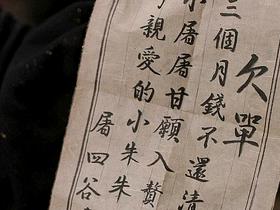 欠單
三個月錢不還清
小屠屠甘願入贅
親愛的小朱朱
屠四谷